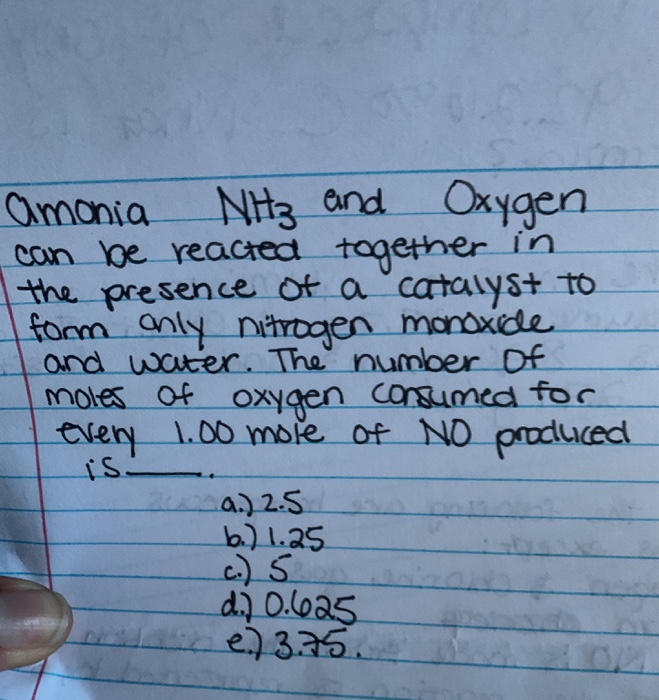 amonia NH3 and Oxygen
can be reacted together in
the presence of a catalyst to
form only nitrogen monoxide
and water. The number of
moles of oxygen consumed for
every 1.00 mole of NO produced
is____.
a.) 2.5
b.) 1.25
c.) 5
d.) 0.625
e.) 3.75.